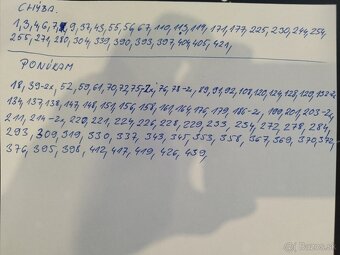 CHÝBA.
1,3,4,6,7,8,9,37,43,55,56,67,110,113,119,171,177,225,230,244,254
255,271,280,304,339,390,393,397,404,405,421,
PONÚKAM
18,39-2x,52,59,61,70,72,75-2x,76,78-2x,89,91,92,108,120,124,128,129,132-2x
134,137,138,147,148,151,156,158,161,164,176,179,186-2x,199,201,203-2x,
211,214-2x,220,221,224,226,228,229,233,234,272,278,284,
293,309,319,330,337,343,345,353,358,367,369,370,372,
376,395,398,412,417,419,426,439,
Bazos.sk